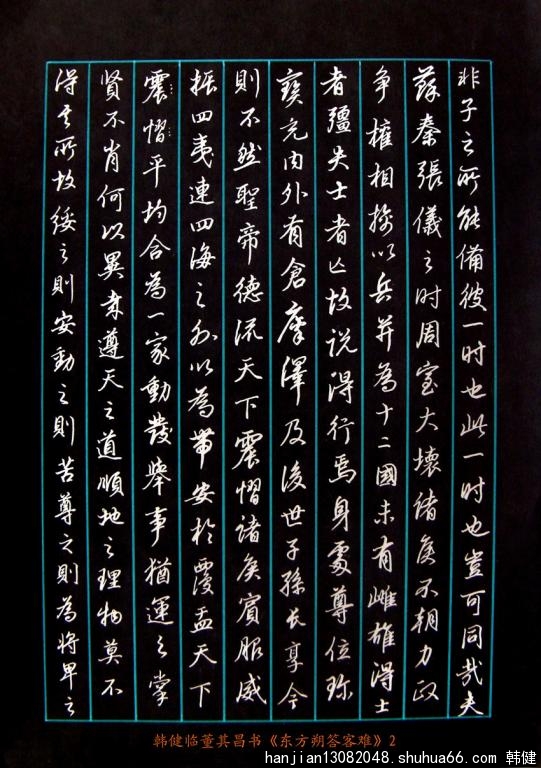 非子之所能備彼一时也此一时也豈可同哉夫
蘇秦張儀之时周室大壞諸侯不朝力政
争權相擒以兵并為十二國未有雌雄得士
者彊失士者亡故说得行焉身處尊位珎
寳充内外有倉廪澤及後世子孫长享今
則不然聖帝德流天下震慴諸侯賓服威
振四夷連四海之外以為帶安於覆盂天下
震慴平均合為一家動發舉事猶運之掌
賢不肖何以異哉遵天之道順地之理物莫不
得其所故綏之則安動之則苦尊之則為将卑之
韩健临董其昌书《东方朔答客难》2
hanjian13082048.shuhua66.com 韩健